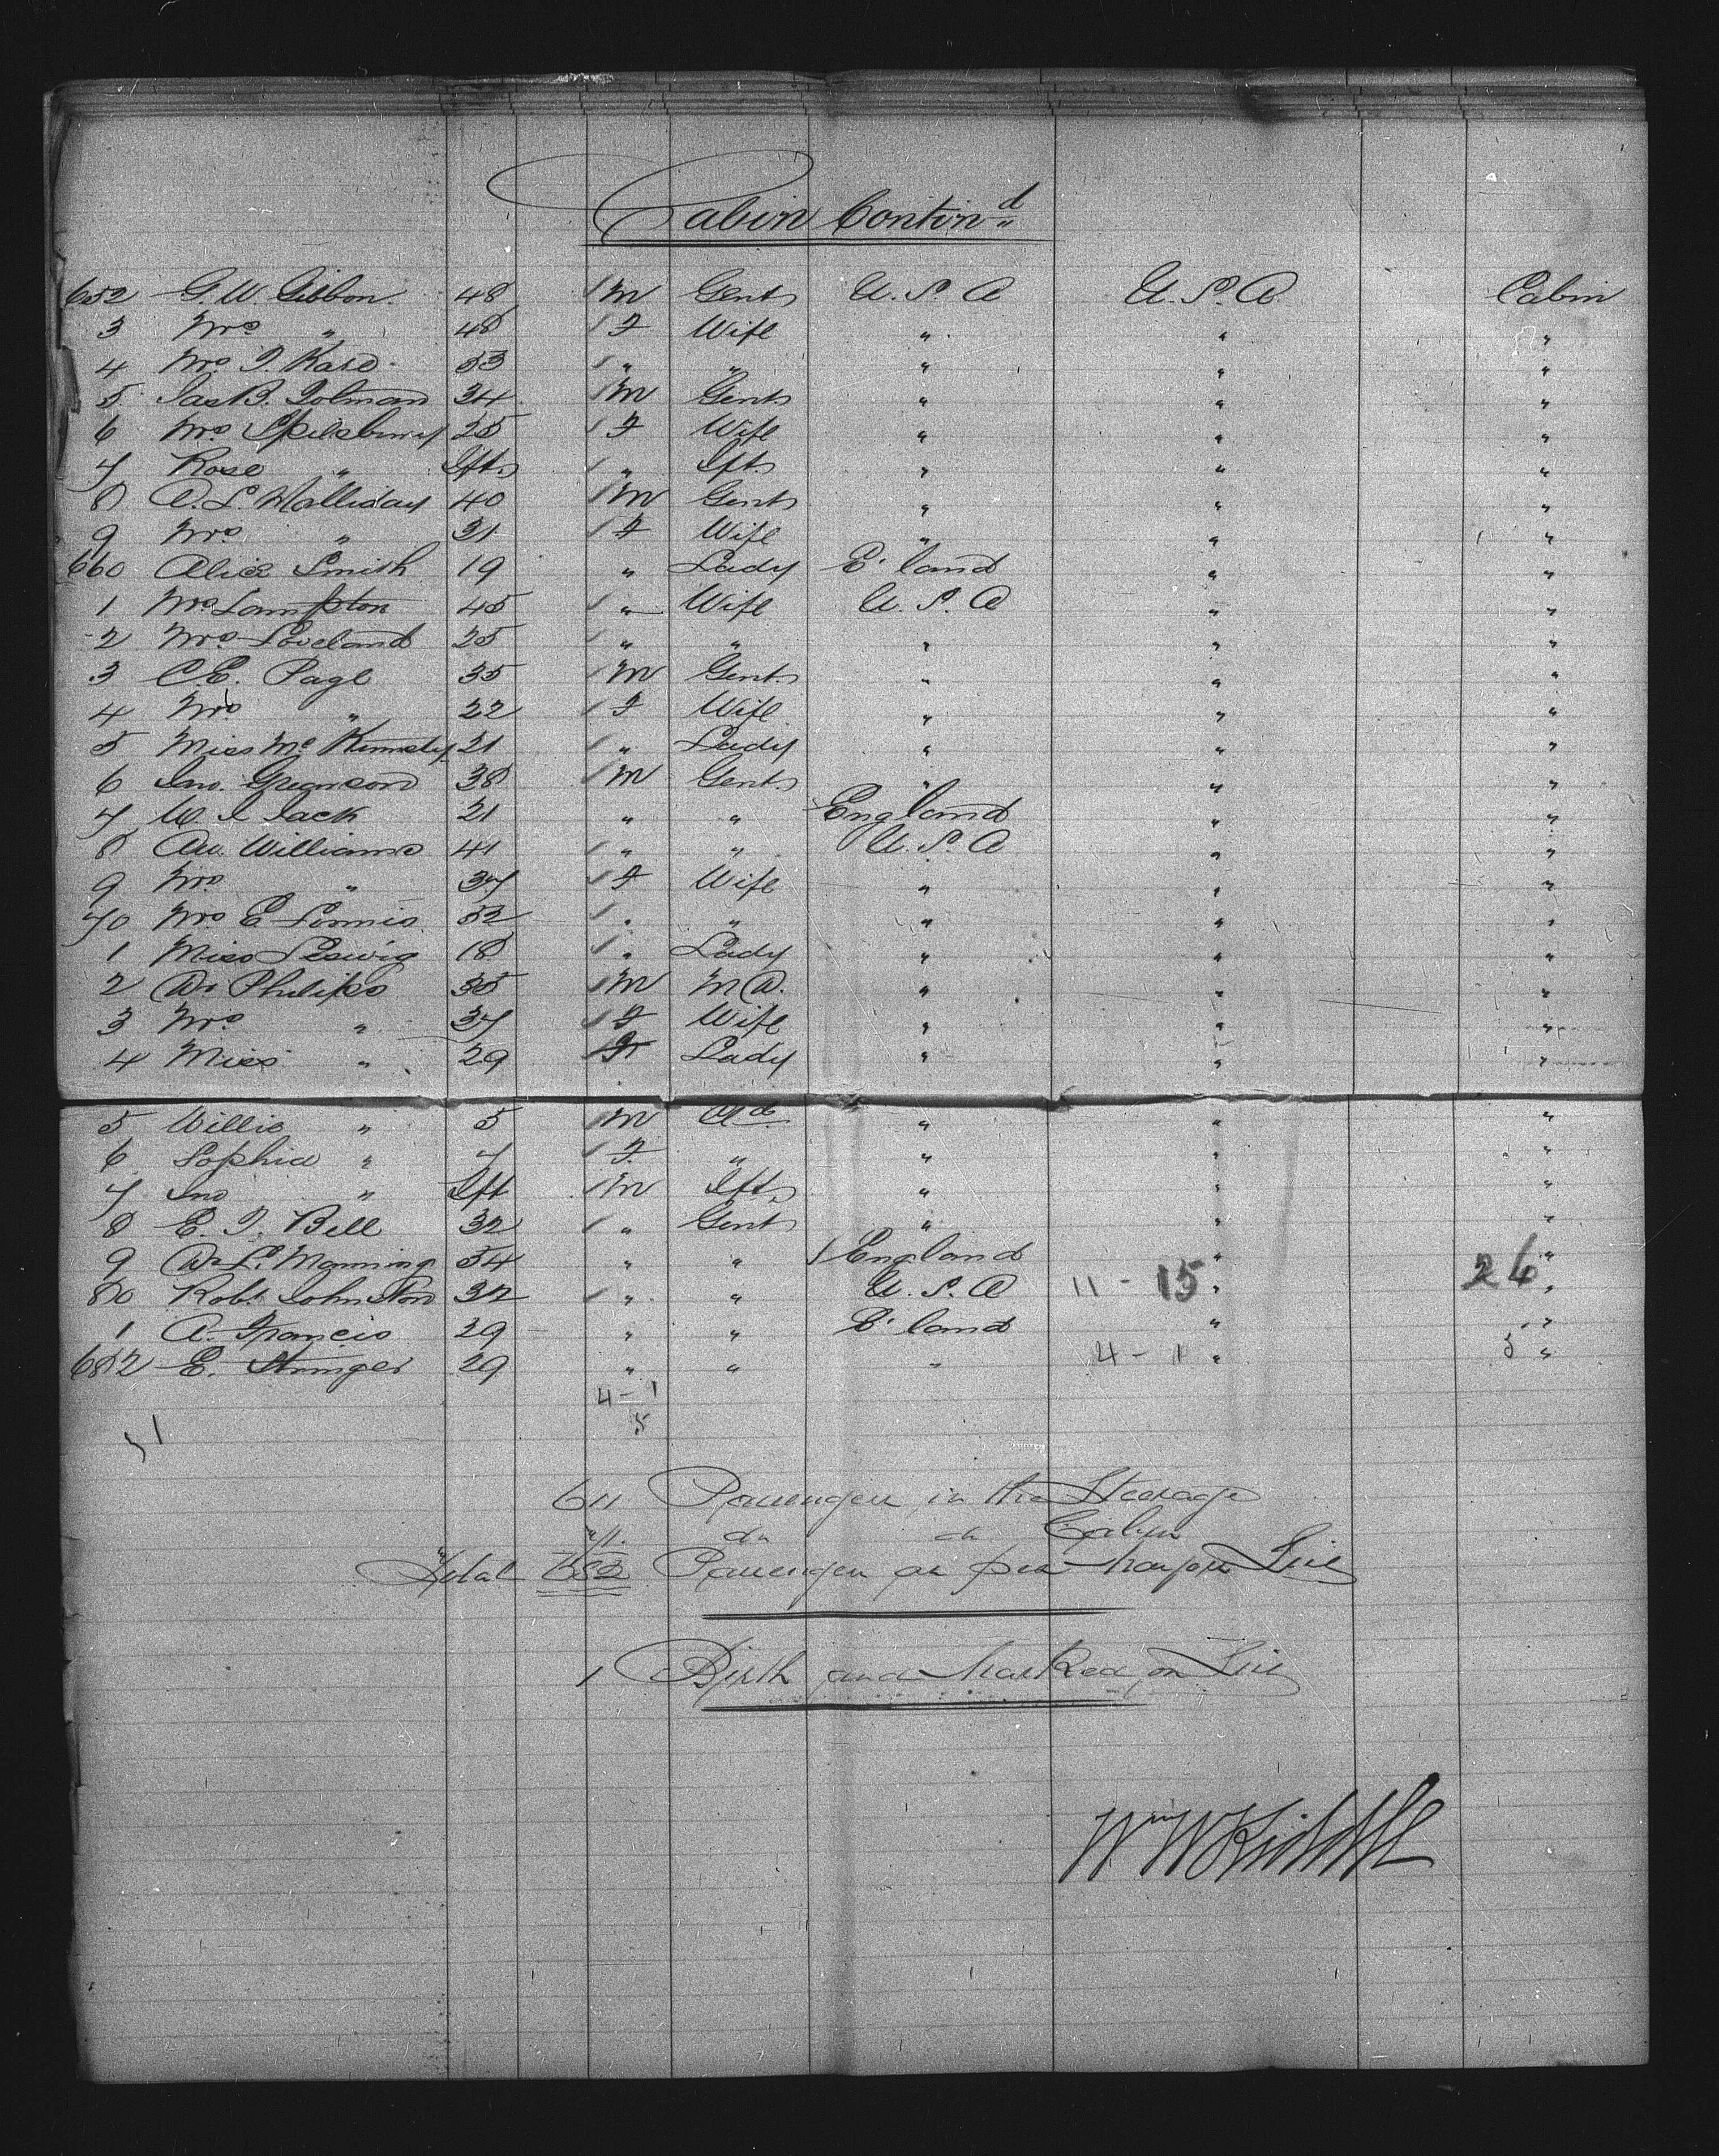 Cabin Contin"d
652 G. W. Gibbon 48 M Gent U.S.A U.S.A Cabin
3 Mrs " 48 F Wife " " "
4 Mrs T. Kase 53 " " " " "
5 Jas B. Tolman 34 M Gent " " "
6 Mrs Spilsbury 25 F Wife " " "
7 Rose " Ift " Ift " " "
8 A. S. Halliday 40 M Gent " " "
9 Mrs " 31 F Wife " " "
660 Alice Smith 19 " Lady E'land " "
1 Mrs Lampton 45 " Wife U.S.A " "
2 Mrs Loveland 25 " " " " "
3 C.E. Page 35 M Gent " " "
4 Mrs " 22 F Wife " " "
5 Miss Mc 21 " Lady " " "
6 Jno. 38 M Gent " " "
7 W. I Jack 21 " " England " "
8 Aw. Williams 41 " " U.S.A " "
9 Mrs " 37 F Wife " " "
70 Mrs E 52 " " " " "
1 Miss 18 " Lady " " "
2 Dr Philips 35 M M.D. " " "
3 Mrs " 37 F Wife " " "
4 Miss " 29 F Lady " " "
5 Willie " 5 M " " "
6 Sophia " 7 F " " " "
7 Jno " Ift M Ift " " "
8 E. T. Bell 32 " Gent " " "
9 Dr S. Manning 54 " " England " "
80 Robt Johnston 32 " " U.S.A 11 - 15 " 26 "
1 A. Francis 29 " " E'land " "
682 E. Stringer 29 " " " 4 - 1 " 5 "
4 - 1
5
31
611 Passengers in the Steerage
71 do do Cabin
Total 682 Passengers as per List
1 Birth and marked on List
Wm W Kiddle